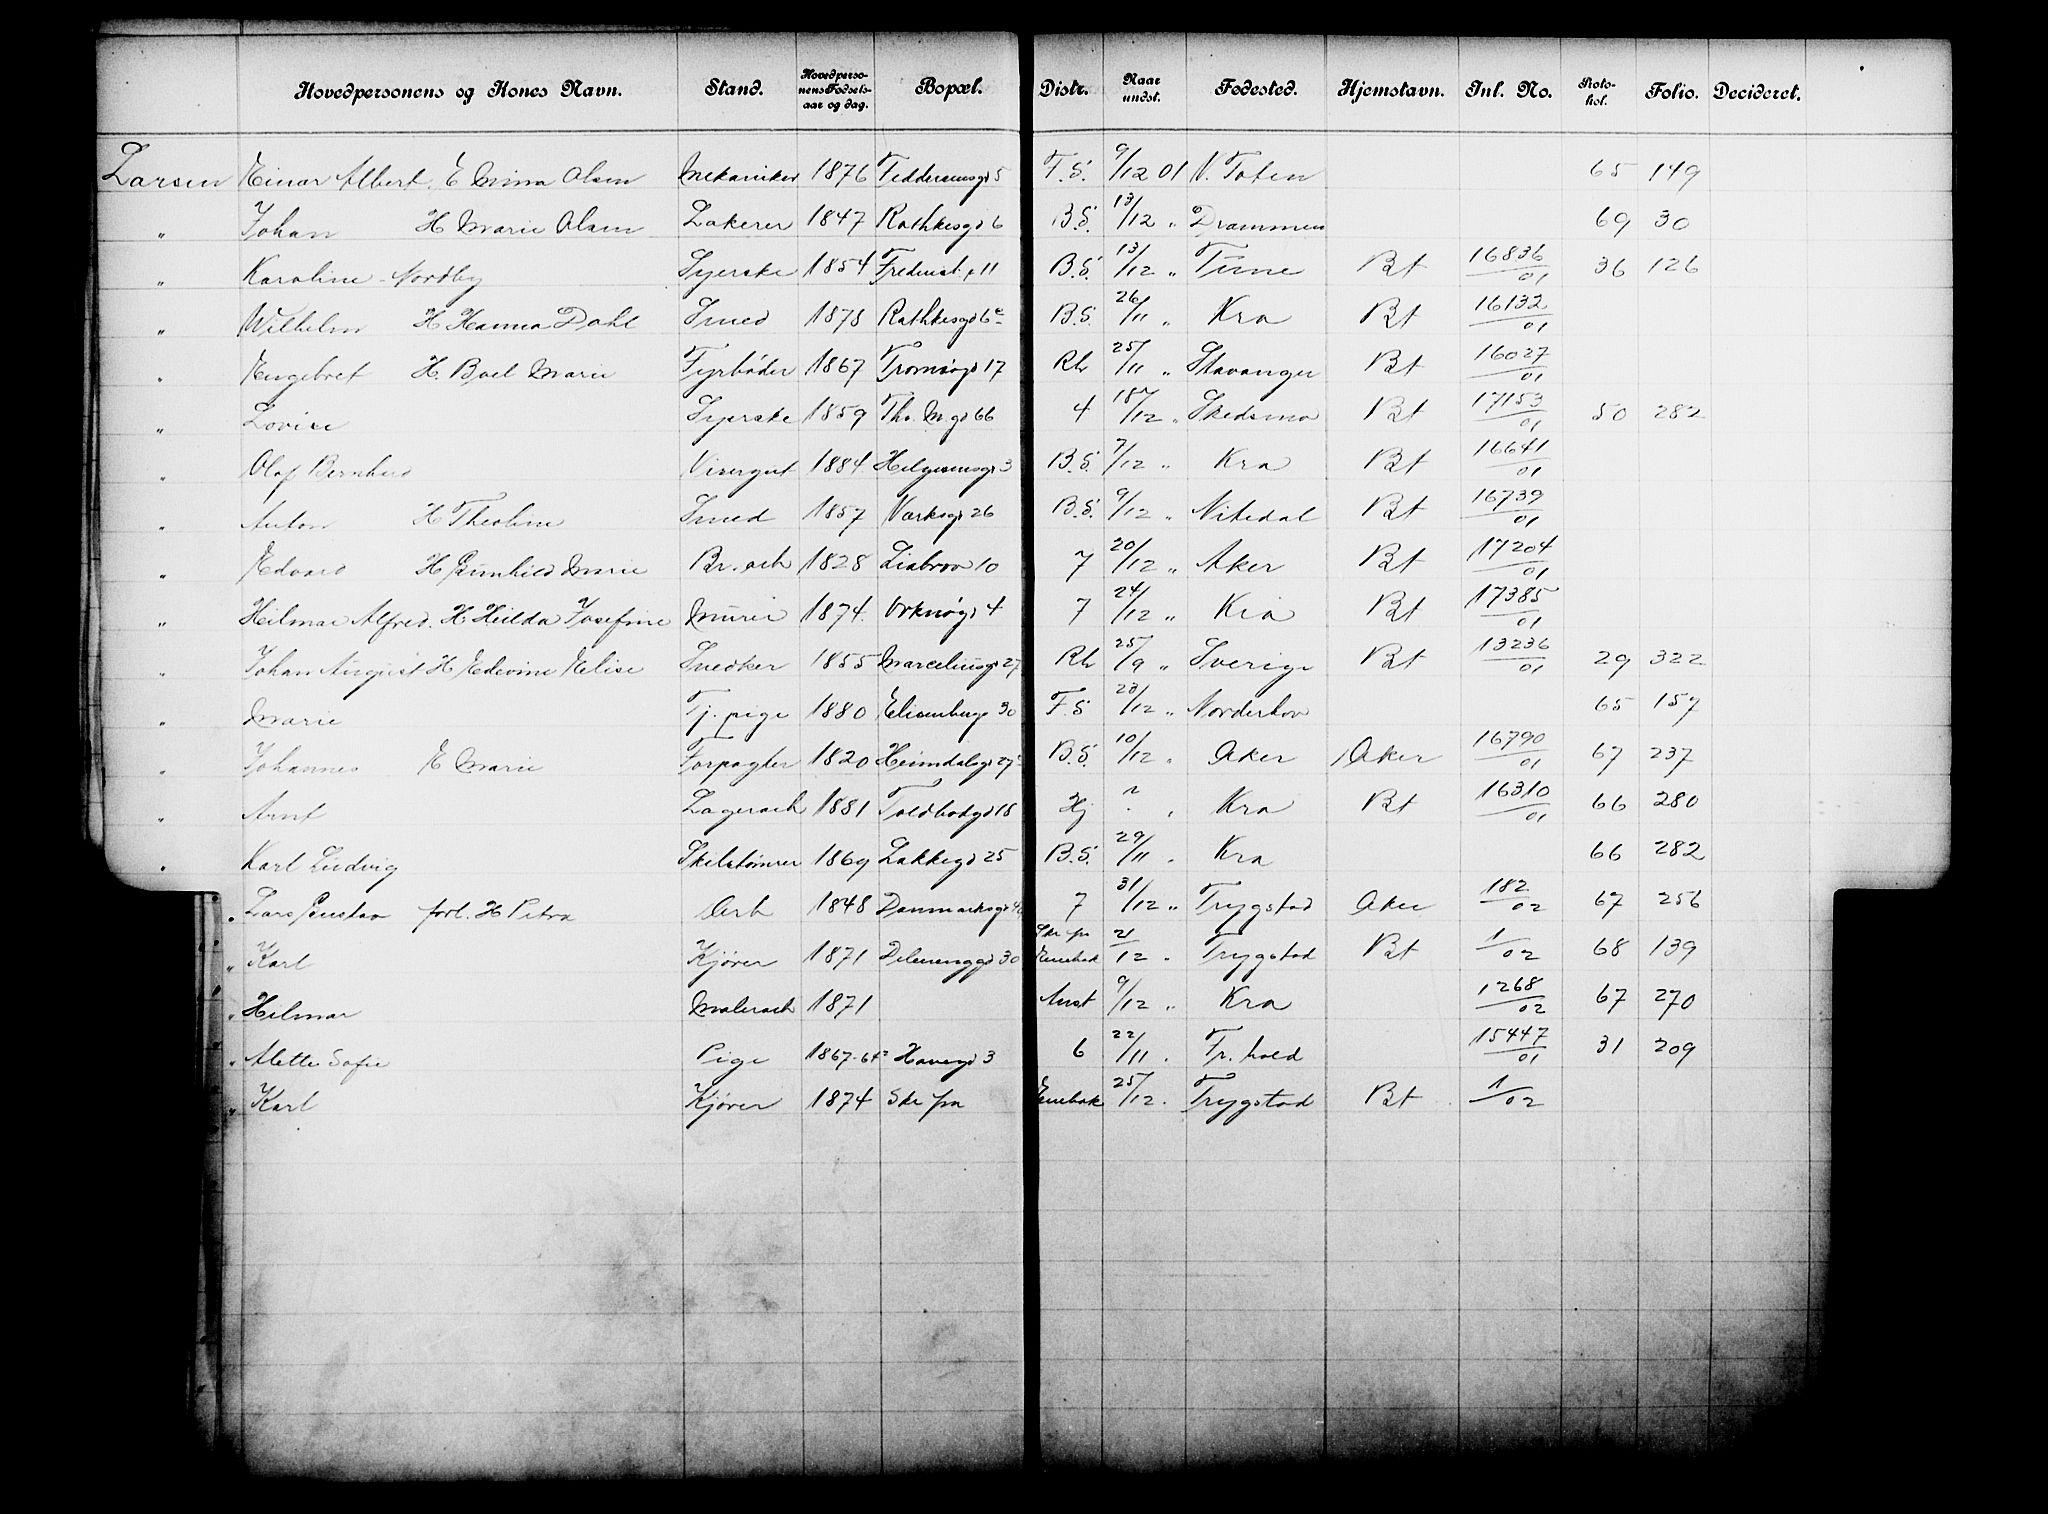 Hovedpersonens og Kones Navn. Stand. Hovedperso-nens Fødsels-aar og dag. Bopæl. Distr. Naar undst. Fødested. Hjemstavn. Inl. No. Proto-kol. Folio. Decideret.
Larsen Einar Albert. E Mina Olsen Mekaniker 1876 Feddersensgd 5 F.S. 9/12 01 V. Toten 65 149
" Johan H Marie Olsen Lakerer 1847 Rathkesgd 6 B.S. 13/12 " Drammen 69 30
" Karoline Nordby Syerske 1854 Fredensb. v 11 B.S. 13/12 " Tune Bt 16836/01 36 126
" Wilhelm H Hanna Dahl Smed 1878 Rathkesgd 6 B.S. 26/11 " Kra Bt 16132/01
" Engebret H. Boel Marie Fyrbøder 1867 Tromsøgd 17 Rh 25/11 " Stavanger Bt 16027/01
" Lovise Syerske 1859 Tho. M.gd 66 4 18/12 " Skedsmo Bt 17153/01 50 282
" Olaf Bernhard Visergut 1884 Helgesensgd 3 B.S. 7/12 " Kra Bt 16641/01
" Anton H Theoline Smed 1857 Verksgd 26 B.S. 9/12 " Nitedal Bt 16739/01
" Edvard H Gunhild Marie Br. arb 1828 Liabrov 10 7 20/12 " Aker Bt 17204/01
" Hilmar Alfred. H Hilda Josefine Murer 1874. Orknøgd 4 7 24/12 " Kra Bt 17385/01
" Johan August H Edevine Elise Snedker 1855 Marcelinsgd 27 Rh 25/9 " Sverige Bt 13236/01 29 322
" Marie Tj. pige 1880 Elisenbergv 30 F.S 23/12 " Norderhov 65 157
" Johannes E Marie Forpagter 1820 Heimdalsgd 27 B.S. 10/12 " Aker Aker 16790/01 67 237
" Arnt Lagerarb 1881 Toldbodgd 18 Hj " " Kra Bt 16310/01 66 280
" Karl Ludvig Skibstømrer 1869 Lakkegd 25 B.S. 29/11 " Kra 66 282
" Lars Gustav forl. H Petra Arb 1848 Danmarksgd 7 31/12 " Trygstad Aker 182/02 67 256
" Karl Kjører 1871 Delenenggd 30 Enebak 21/12 " Trygstad Bt 1/02 68 139
" Hilmar Malerarb 1871 Anst 9/12 " Kra 1268/02 67 270
" Alette Sofie Pige 1867-64? Havegd 3 6 22/11 " Fr. hald 15447/01 31 209
" Karl Kjører 1874 Ske pn Enebak 25/12 " Trygstad Bt 1/02